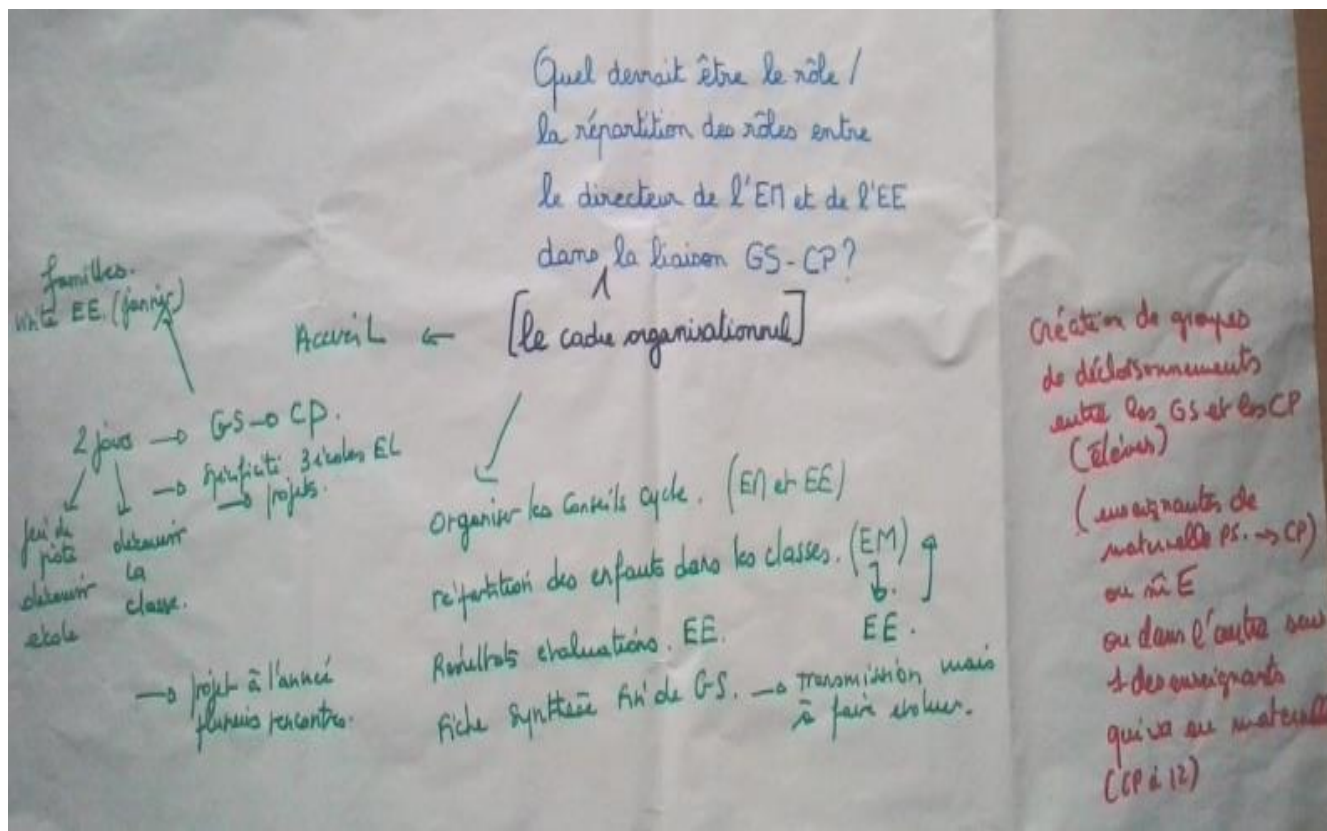 Quel devrait être le rôle /
la répartition des rôles entre
le directeur de l'EM et de l'EE
dans la liaison GS-CP?
[le cadre organisationnel]
Accueil ←
familles.
visite EE. (janvier)
2 jours → GS → CP.
→ spécificité 3 écoles EL
→ projets.
jeu de
piste
découvrir
école
découvrir
la
classe.
→ projet à l'année
plusieurs rencontres.
Organiser les Conseils cycle. (EM et EE)
répartition des enfants dans les classes. (EM)
EE.
Résultats évaluations. EE.
Fiche synthèse fin de GS. → transmission mais
à faire évoluer.
Création de groupes
de décloisonnements
entre les GS et les CP
(élèves)
(enseignantes de
maternelle PS. → CP)
ou
ou dans l'autre sens
1 des enseignants
qui va en maternelle
(CP à 12)